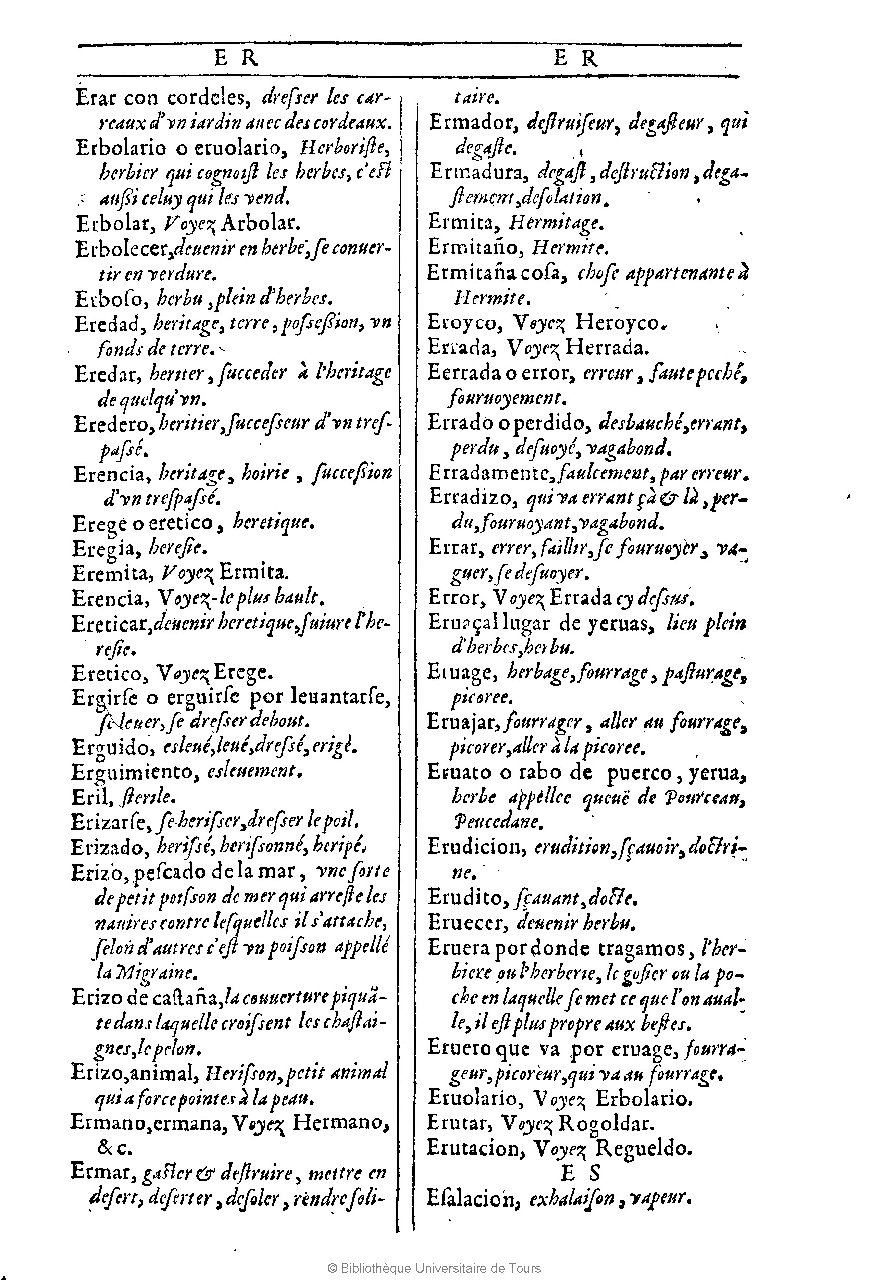 E R
Erar con cordeles, dreſſer les car-
reaux d'vn iardin auec des cordeaux.
Erbolario o eruolario, Herboriſte,
herbier qui cognoiſt les herbes, c'eſt
auſſi celuy qui les vend.
Erbolar, Voyez Arbolar.
Erbolecer, deuenir en herbe, ſe conuer-
tir en verdure.
Erboſo, herbu, plein d'herbes.
Eredad, heritage, terre, poſſeſſion, vn
fonds de terre.
Eredar, heriter, ſucceder à l'heritage
de quelqu'vn.
Eredero, heritier, ſucceſſeur d'vn treſ-
paſſé.
Erencia, heritage, hoirie, ſucceſſion
d'vn treſpaſſé.
Erege o eretico, heretique.
Eregia, hereſie.
Eremita, Voyez Ermita.
Erencia, Voyez-le plus hault.
Ereticar, deuenir heretique, ſuiure l'he-
reſie.
Eretico, Voyez Erege.
Ergirſe o erguirſe por leuantarſe,
ſe leuer, ſe dreſſer debout.
Erguido, esleué, leué, dreſſé, erigé.
Erguimiento, esleuement.
Eril, ſterile.
Erizarſe, ſe heriſſer, dreſſer le poil.
Erizado, heriſſé, heriſſonné, heripé.
Erizo, peſcado de la mar, vne ſorte
de petit poiſſon de mer qui arreſte les
nauires contre leſquelles il s'attache,
ſelon d'autres c'eſt vn poiſſon appellé
la Migraine.
Erizo de caſtaña, la couuerture piquã-
te dans laquelle croiſſent les chaſtai-
gnes, le pelon.
Erizo, animal, Heriſſon, petit animal
qui a force pointes à la peau.
Ermano, ermana, Voyez Hermano,
&c.
Ermar, gaſter & deſtruire, mettre en
deſert, deſerter, deſoler, rendre ſoli-
E R
taire.
Ermador, deſtruiſeur, degaſteur, qui
degaſte.
Ermadura, degaſt, deſtruction, dega-
ſtement, deſolation.
Ermita, Hermitage.
Ermitaño, Hermite.
Ermitaña coſa, choſe appartenante à
Hermite.
Eroyco, Voyez Heroyco.
Errada, Voyez Herrada.
Eerrada o error, erreur, faute peché,
fouruoyement.
Errado o perdido, desbauché, errant,
perdu, deſuoyé, vagabond.
Erradamente, faulcement, par erreur.
Erradizo, qui va errant çà & là, per-
du, fouruoyant, vagabond.
Errar, errer, faillir, ſe fouruoyer, va-
guer, ſe deſuoyer.
Error, Voyez Errada cy deſſus.
Eruaçal lugar de yeruas, lieu plein
d'herbes, herbu.
Eruage, herbage, fourrage, paſturage,
picoree.
Eruajar, fourrager, aller au fourrage,
picorer, aller à la picoree.
Eruato o rabo de puerco, yerua,
herbe appellee queuë de Pourceau,
Peucedane.
Erudicion, erudition, ſçauoir, doctri-
ne.
Erudito, ſçauant, docte.
Eruecer, deuenir herbu.
Eruera por donde tragamos, l'her-
biere ou l'herberie, le goſier ou la po-
che en laquelle ſe met ce que l'on aual-
le, il eſt plus propre aux beſtes.
Eruero que va por eruage, fourra-
geur, picoreur, qui va au fourrage.
Eruolario, Voyez Erbolario.
Erutar, Voyez Rogoldar.
Erutacion, Voyez Regueldo.
E S
Eſalacion, exhalaiſon, vapeur.
© Bibliothèque Universitaire de Tours